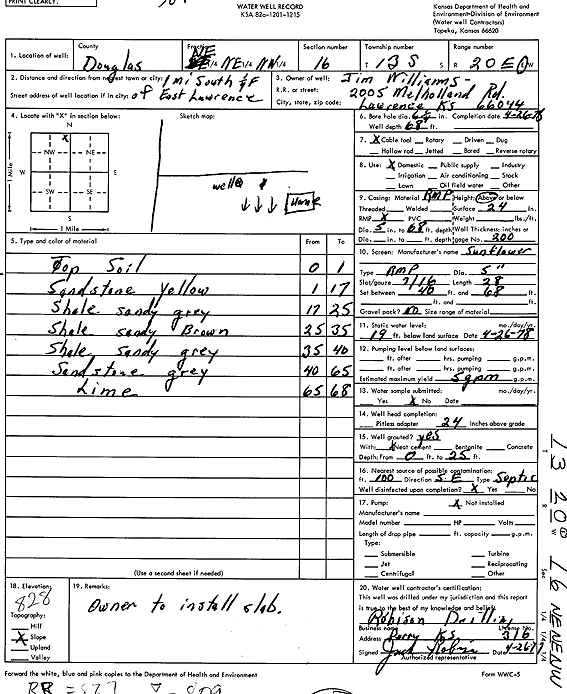 PRINT CLEARLY.
WATER WELL RECORD
KSA 82a-1201-1215
Kansas Department of Health and
Environment-Division of Environment
(Water well Contractors)
Topeka, Kansas 66620
1. Location of well:
County
Douglas
Fraction
NE
NE 1/4 NE 1/4 NW 1/4
Section number
16
Township number
T 13 S S
Range number
R 20 E W
2. Distance and direction from nearest town or city: 1 mi South of
Street address of well location if in city: of East Lawrence
3. Owner of well: Jim Williams -
R.R. or street: 2005 Melholland Rd.
City, state, zip code: Lawrence KS 66044
4. Locate with "X" in section below:
N
X
NW NE
W E
SW SE
S
1 Mile
1 Mile
Sketch map:
well
House
6. Bore hole dia. in. Completion date 4-26-78
Well depth 68 ft.
7. X Cable tool Rotary Driven Dug
Hollow rod Jetted Bored Reverse rotary
8. Use: X Domestic Public supply Industry
Irrigation Air conditioning Stock
Lawn Oil field water Other
9. Casing: Material RMP Height: Above or below
Threaded Welded Surface 24 in.
RMP X PVC Weight lbs./ft.
Dia. 5 in. to 68 ft. depth Wall Thickness: inches or
Dia. in. to ft. depth gage No. 200
10. Screen: Manufacturer's name Sunflower
Type RMP Dia. 5"
Slot/gauze 7/16 Length 28
Set between 40 ft. and 68 ft.
ft. and ft.
Gravel pack? no Size range of material
5. Type and color of material From To
Top Soil 0 1
Sandstone Yellow 1 17
Shale sandy grey 17 25
Shale sandy Brown 25 35
Shale sandy grey 35 40
Sandstone grey 40 65
Lime 65 68
(Use a second sheet if needed)
11. Static water level: mo./day/yr.
19 ft. below land surface Date 4-26-78
12. Pumping level below land surfaces:
ft. after hrs. pumping g.p.m.
ft. after hrs. pumping g.p.m.
Estimated maximum yield 5 gpm g.p.m.
13. Water sample submitted: mo./day/yr.
Yes X No Date
14. Well head completion:
Pitless adapter 24 Inches above grade
15. Well grouted? yes
With: X Neat cement Bentonite Concrete
Depth: From 0 ft. to 25 ft.
16. Nearest source of possible contamination:
ft. 100 Direction S.E Type Septic
Well disinfected upon completion? X Yes No
17. Pump: X Not installed
Manufacturer's name
Model number HP Volts
Length of drop pipe ft. capacity g.p.m.
Type:
Submersible Turbine
Jet Reciprocating
Centrifugal Other
18. Elevation:
828
Topography:
Hill
X Slope
Upland
Valley
19. Remarks:
Owner to install slab.
20. Water well contractor's certification:
This well was drilled under my jurisdiction and this report
is true to the best of my knowledge and belief.
Robison Drilling
Business name License No.
Address Perry KS. 316
Signed Date
Authorized representative
Forward the white, blue and pink copies to the Department of Health and Environment
Form WWC-5